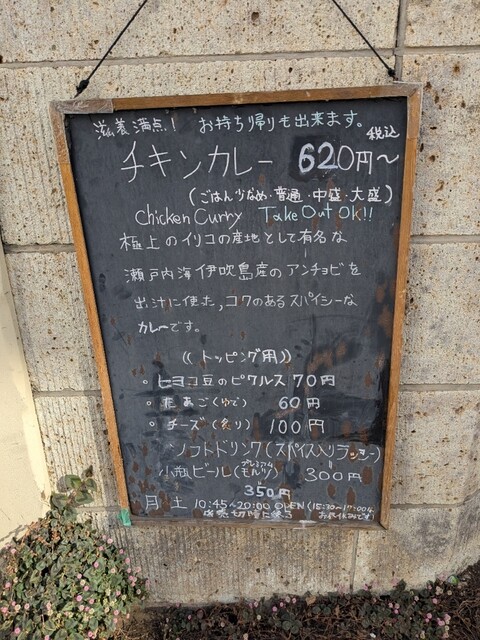 滋養満点！ お持ち帰りも出来ます。
チキンカレー 620円〜 税込
(ごはん少なめ・普通・中盛・大盛)
Chicken Curry Take Out OK!!
極上のイリコの産地として有名な
瀬戸内海伊吹島産のアンチョビを
出汁に使た,コクのあるスパイシーな
カレーです。
(( トッピング用))
。ヒヨコ豆のピクルス 70円
。たまご(ゆで) 60円
。チーズ(炙り) 100円
ソフトドリンク(スパイス入りラッシー)
小瓶ビール(プレミアムモルツ) 300円
350円
月〜土 10:45~20:00 OPEN (15:30~17:00は
お休みです)